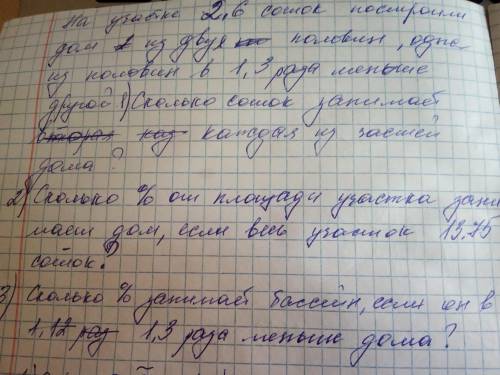 На участке 2,6 соток построили
дом из двух половин, одна
из половин в 1,3 раза меньше
другой 1) Сколько соток занимает
вторая каждая из частей
дома?
2) Сколько % от площади участка зани
мает дом, если весь участок 13,75
соток?
3) Сколько % занимает бассейн, если он в
1,12 раз 1,3 раза меньше дома?